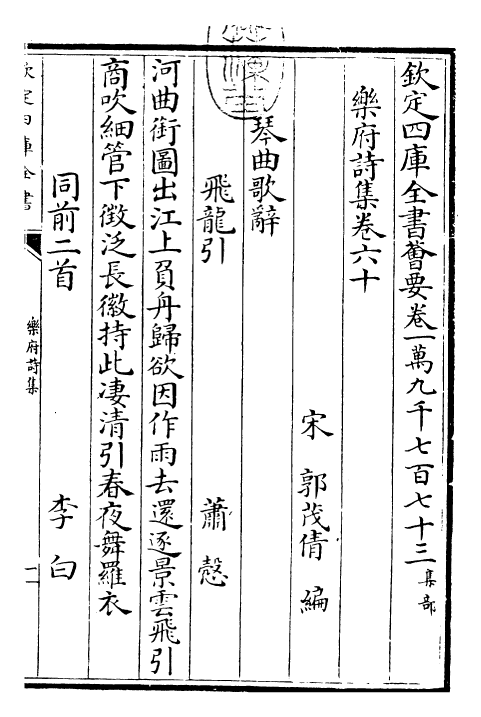 欽定四庫全書薈要卷一萬九千七百七十三集部
樂府詩集卷六十
宋 郭茂倩 編
琴曲歌辭
飛龍引 蕭慤
河曲銜圖出江上負舟歸欲因作雨去還逐景雲飛引
商吹細管下徴泛長徽持此凄清引春夜舞羅衣
同前二首 李白
欽定四庫全書
樂府詩集
一